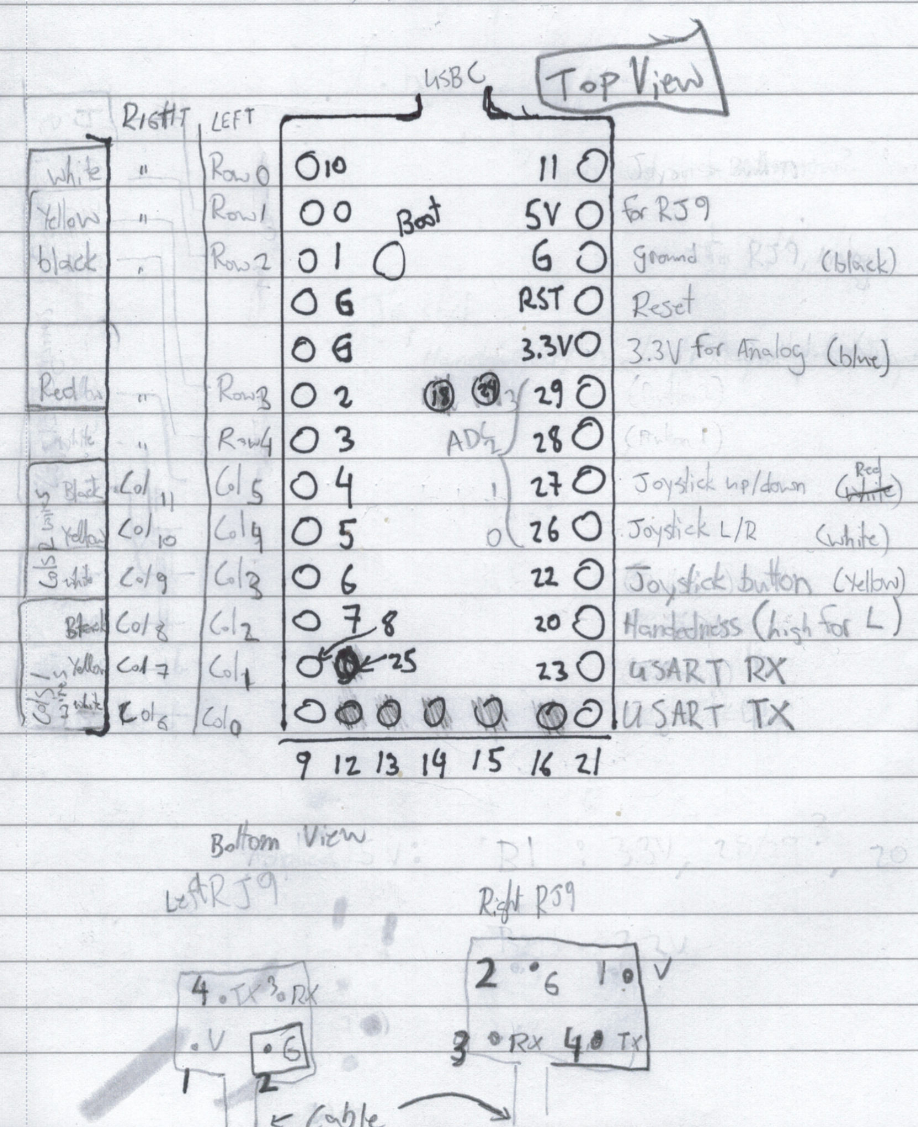 USB C
Top View
Right LEFT
white " Row 0 10 11
Yellow " Row 1 0 5V for RJ9
Boot
black " Row 2 1 G Ground (black)
G RST Reset
G 3.3V 3.3V for Analog (blue)
Red " Row 3 2 18 29 Ø
white " Row 4 3 ADC 28
Black Col 11 Col 5 4 1 27 Joystick up/down Red (white)
Yellow Col 10 Col 4 5 0 26 Joystick L/R (white)
white Col 9 Col 3 6 22 Joystick button (Yellow)
Black Col 8 Col 2 7 8 20 Handedness (high for L)
Yellow Col 7 Col 1 25 23 USART RX
white Col 6 Col 0 USART TX
9 12 13 14 15 16 21
Bottom View
Left RJ9 Right RJ9
2 G 1 V
4 TX 3 RX
3 RX 4 TX
V G
1 2
Cable